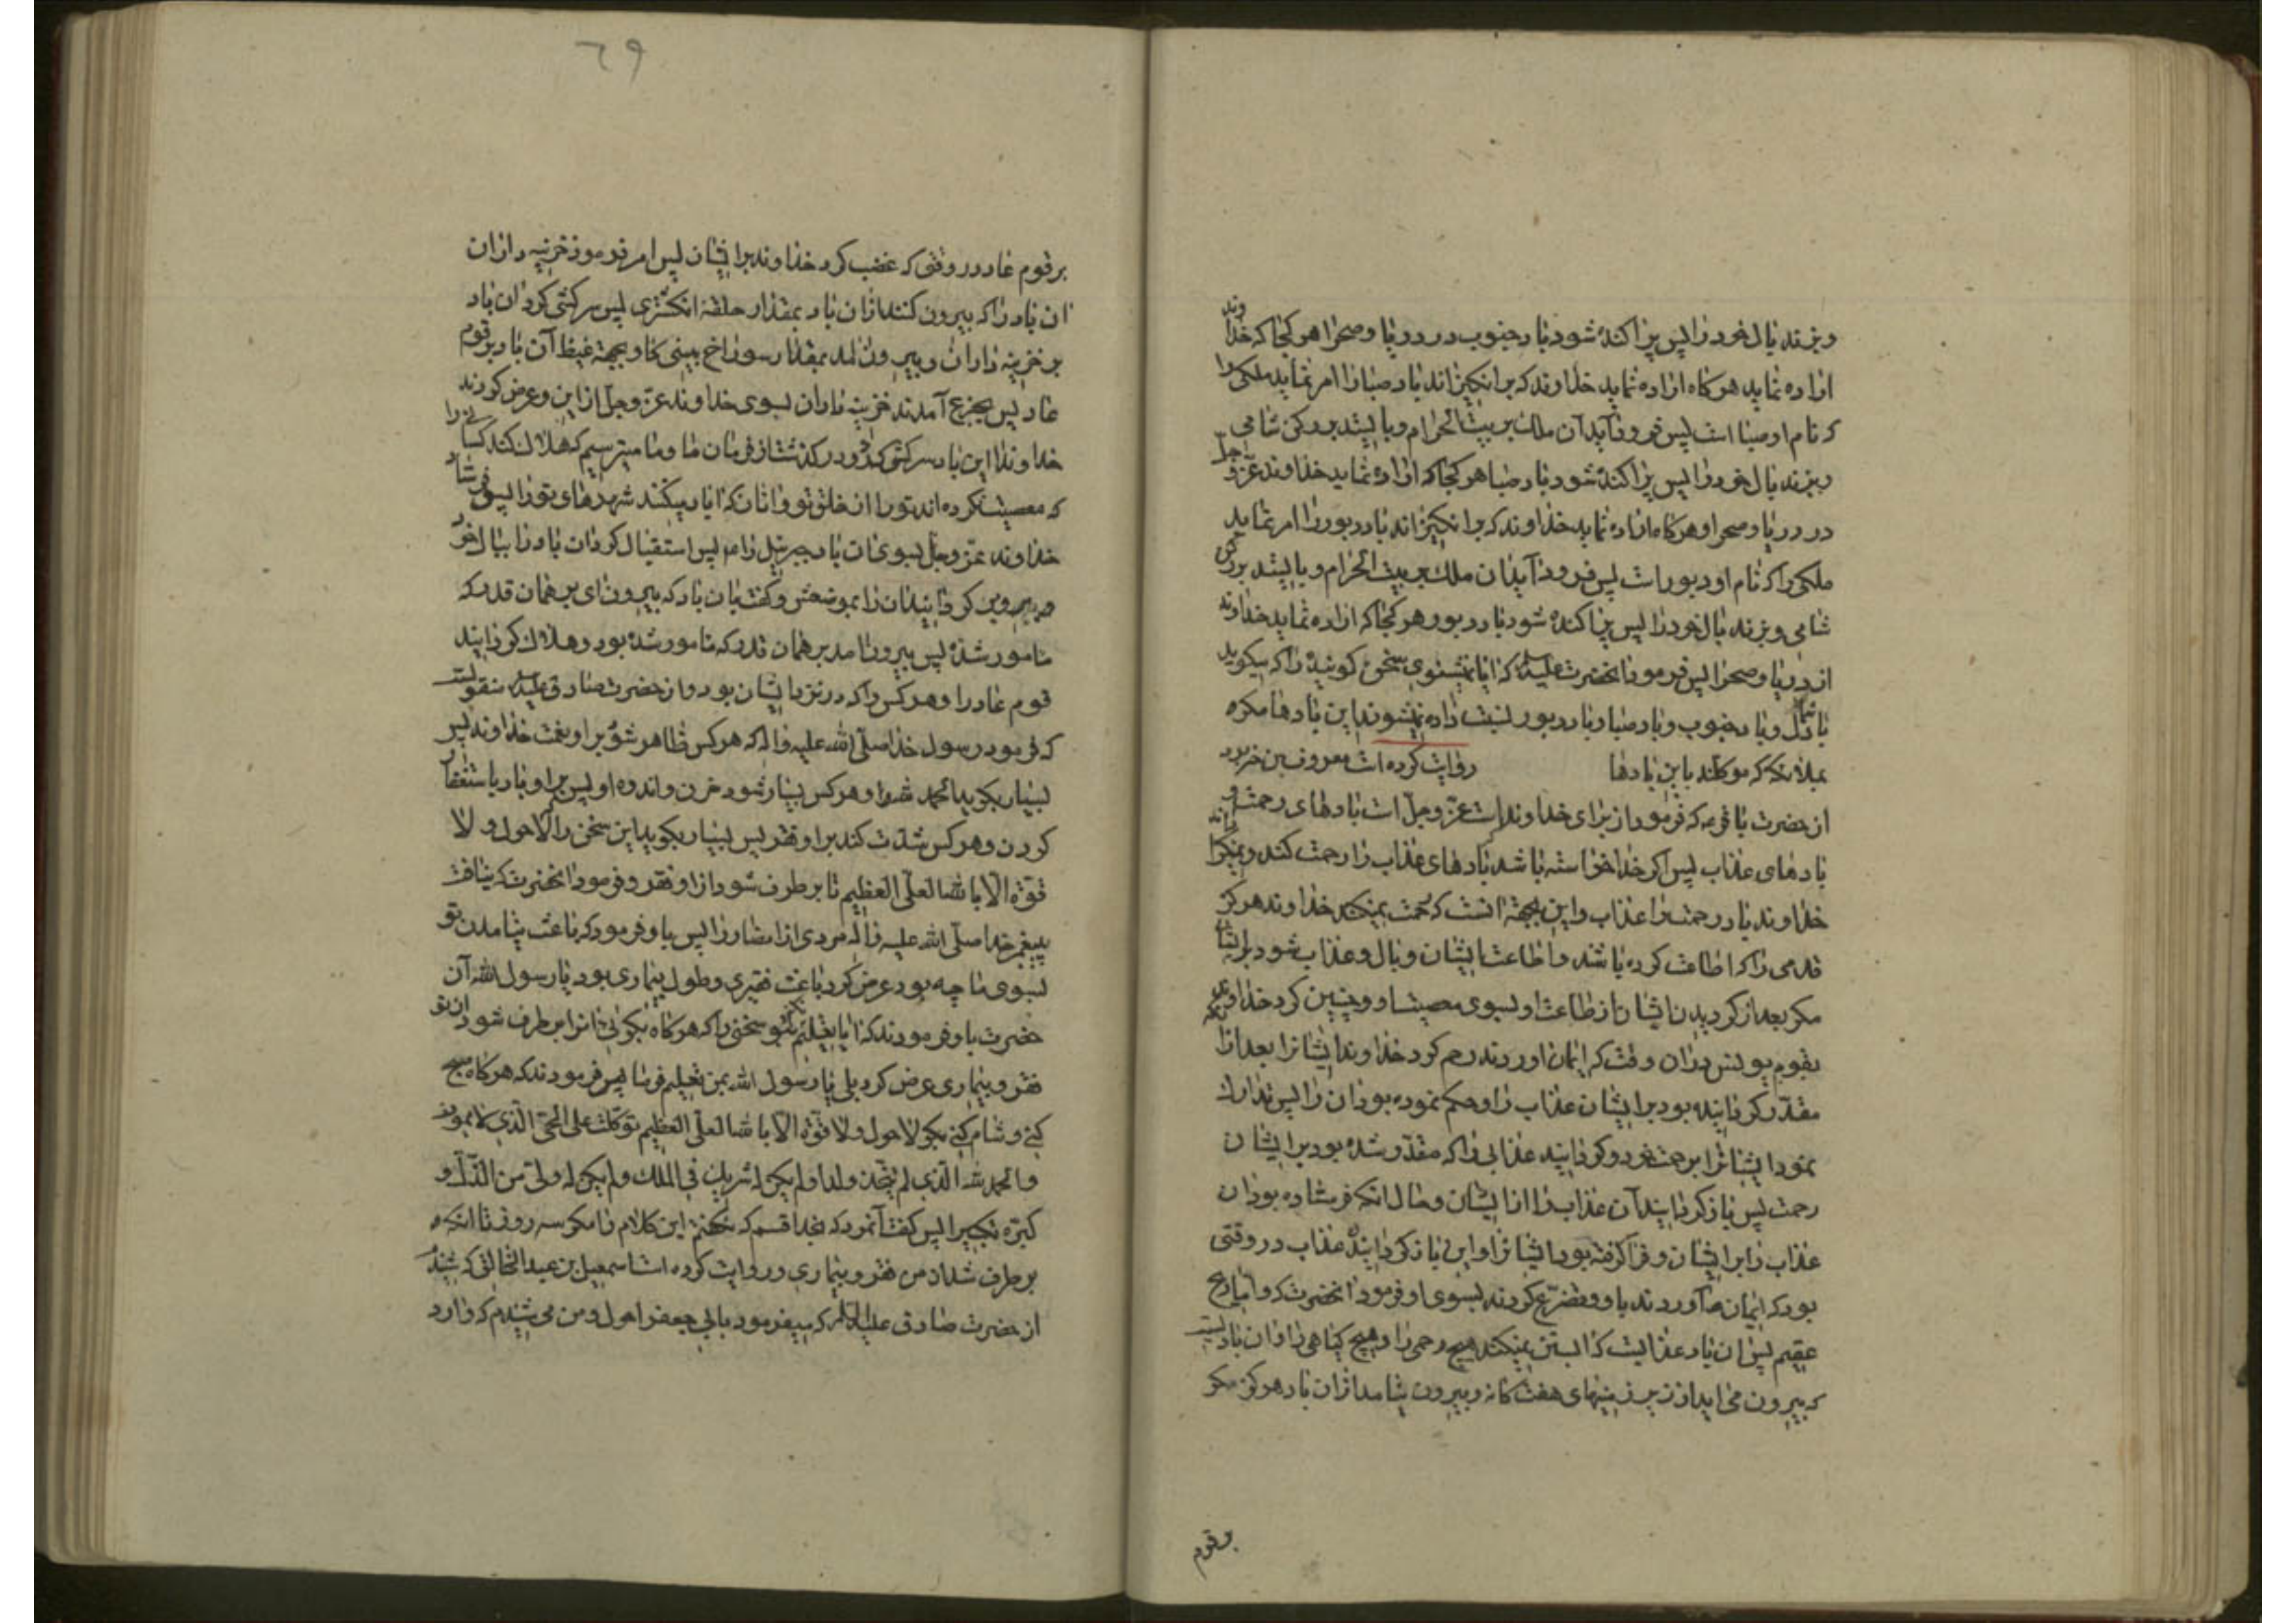 وبزند بال خود را پس پراکنده شود باد جنوب در دریا و صحرا هر کجا که خداوند
اراده نماید هرکاه اراده نماید خداوند که برانکیزاند باد صبا را امر نماید ملکی را
که نام او صبا است پس فرود آید آن ملک بر بیت الحرام و بایستد بر رکن شامی
وبزند بال خود را پس پراکنده شود باد صبا هر کجا که اراده نماید خداوند عزّ و جلّ
در دریا و صحرا و هرکاه اراده نماید خداوند که برانکیزاند باد دبور را امر نماید
ملکی را که نام او دبور است پس فرود آید آن ملک بر بیت الحرام و بایستد بر رکن
شامی و بزند بال خود را پس پراکنده شود باد دبور هر کجا که اراده نماید خداوند
از دریا و صحرا پس فرمود آنحضرت علیه السلام که ایا نمیشنوی سخن کوینده را که میکوید
باد شمال و باد جنوب و باد صبا و باد دبور نسبت داده نمیشوند این بادها مکر
بملائکه که موکلند باین بادها روایت کرده است معروف بن خربود
از حضرت باقر ع که فرمود از برای خداوند است عزّ و جلّ است بادهای رحمت و
بادهای عذاب پس اکر خدا خواسته باشد بادهای عذاب را رحمت کند و نمیکرداند
خداوند باد رحمت را عذاب و این بجهة آنست که رحمت نمیکند خداوند هرکز
قدمی را که اطاعت کرده باشد و اطاعت ایشان وبال و عذاب شود بر ایشان
مکر بعد از کردیدن ایشان از طاعت او بسوی معصیت او و چنین کرد خداوند
بقوم یونس در آن وقت که ایمان اوردند رحم کرد خداوند ایشانرا بعد از آنکه
مقدّر کردانیده بود بر ایشان عذاب را و حکم نموده بود آن را پس تدارک
نمود ایشانرا برحمت خود و کردانید عذابی را که مقدّر شده بود بر ایشان
رحمت پس باز کردانید آن عذاب را از ایشان و حال آنکه فرستاده بود آن
عذاب را بر ایشان و فرا کرفته بود ایشانرا و این باز کردانیدن عذاب در وقتی
بود که ایمان آوردند باو و تضرّع کردند بسوی او و فرمود آنحضرت که و امّا ریح
عقیم پس آن باد عذابیست که آبستن نمیکند هیچ رحمی را و هیچ کیاهی را و آن بادیست
که بیرون می اید از زیر زمینهای هفت کانه و بیرون نیامد از آن باد هرکز مکر
بر قوم
٦٩
بر قوم عاد در وقتی که غضب کرد خداوند بر ایشان پس امر فرمود خزینه داران
ان باد را که بیرون کنند از ان باد بمقدار حلقهٔ انکشتری پس سرکشی کرد ان باد
بر خزینه داران و بیرون امد بمقدار سوراخ بینی کاو بجهة غیظ آن باد بر قوم
عاد پس بجزع آمدند خزینه داران بسوی خداوند عزّ و جلّ از این و عرض کردند
خداوندا این باد سرکشی کرد و در کذشت از فرمان ما و ما میترسیم که هلاک کند کسانی را
که معصیت نکرده اند تو را از خلق تو و انان که اباد میکنند شهرهای تو را پس فرستاد
خداوند عزّ و جلّ بسوی ان باد جبرئیل را پس استقبال کرد ان باد را ببال خود
و کردانید ان را بموضعش و کفت بان باد که بیرون ای بر همان قدر که
مامور شدهٔ پس بیرون امد بر همان قدر که مامور شده بود و هلاک کردانید
قوم عاد را و هر کس را که در نزد ایشان بود و از حضرت صادق علیه السلام منقولست
که فرمود رسول خدا صلّی الله علیه و اله که هر کس ظاهر شود بر او نعمت خداوند پس
بسیار بکوید الحمد لله را و هر کس بسیار شود حزن و اندوه او پس بر او باد باستغفار
کردن و هر کس شدّت کند بر او فقر پس بسیار بکوید این سخن را که لا حول و لا
قوّة الّا بالله العلّی العظیم تا بر طرف شود از او فقر و فرمود انحضرت که نیافت
پیغمبر خدا صلّی الله علیه و آله مردی از انصار را پس باو فرمود که باعث نیامدن تو
بسوی ما چه بود عرض کرد باعث فقیری و طول بیماری بود یا رسول الله آن
حضرت باو فرمودند که ایا تعلیم نکنم بتو سخنی را که هرکاه بکوئی انرا بر طرف شود از تو
فقر و بیماری عرض کرد بلی یا رسول الله بمن تعلیم فرما پس فرمودند که هرکاه صبح
کنی و شام کنی بکو لا حول و لا قوّة الّا بالله العلّی العظیم توکّلت علی الحیّ الّذی لا یموت
و الحمد لله الّذی لم یتّخذ ولدا و لم یکن له شریک فی الملک و لم یکن له ولیّ من الذّلّ و
کبّره تکبیرا پس کفت آنمرد که بخدا قسم که نکفتم این کلام را مکر سه روز تا انکه
بر طرف شد از من فقر و بیماری و روایت کرده است اسمعیل بن عبد الخالق که شنیدم
از حضرت صادق علیه السلام که میفرمود بابی جعفر احول و من می شنیدم که وارد